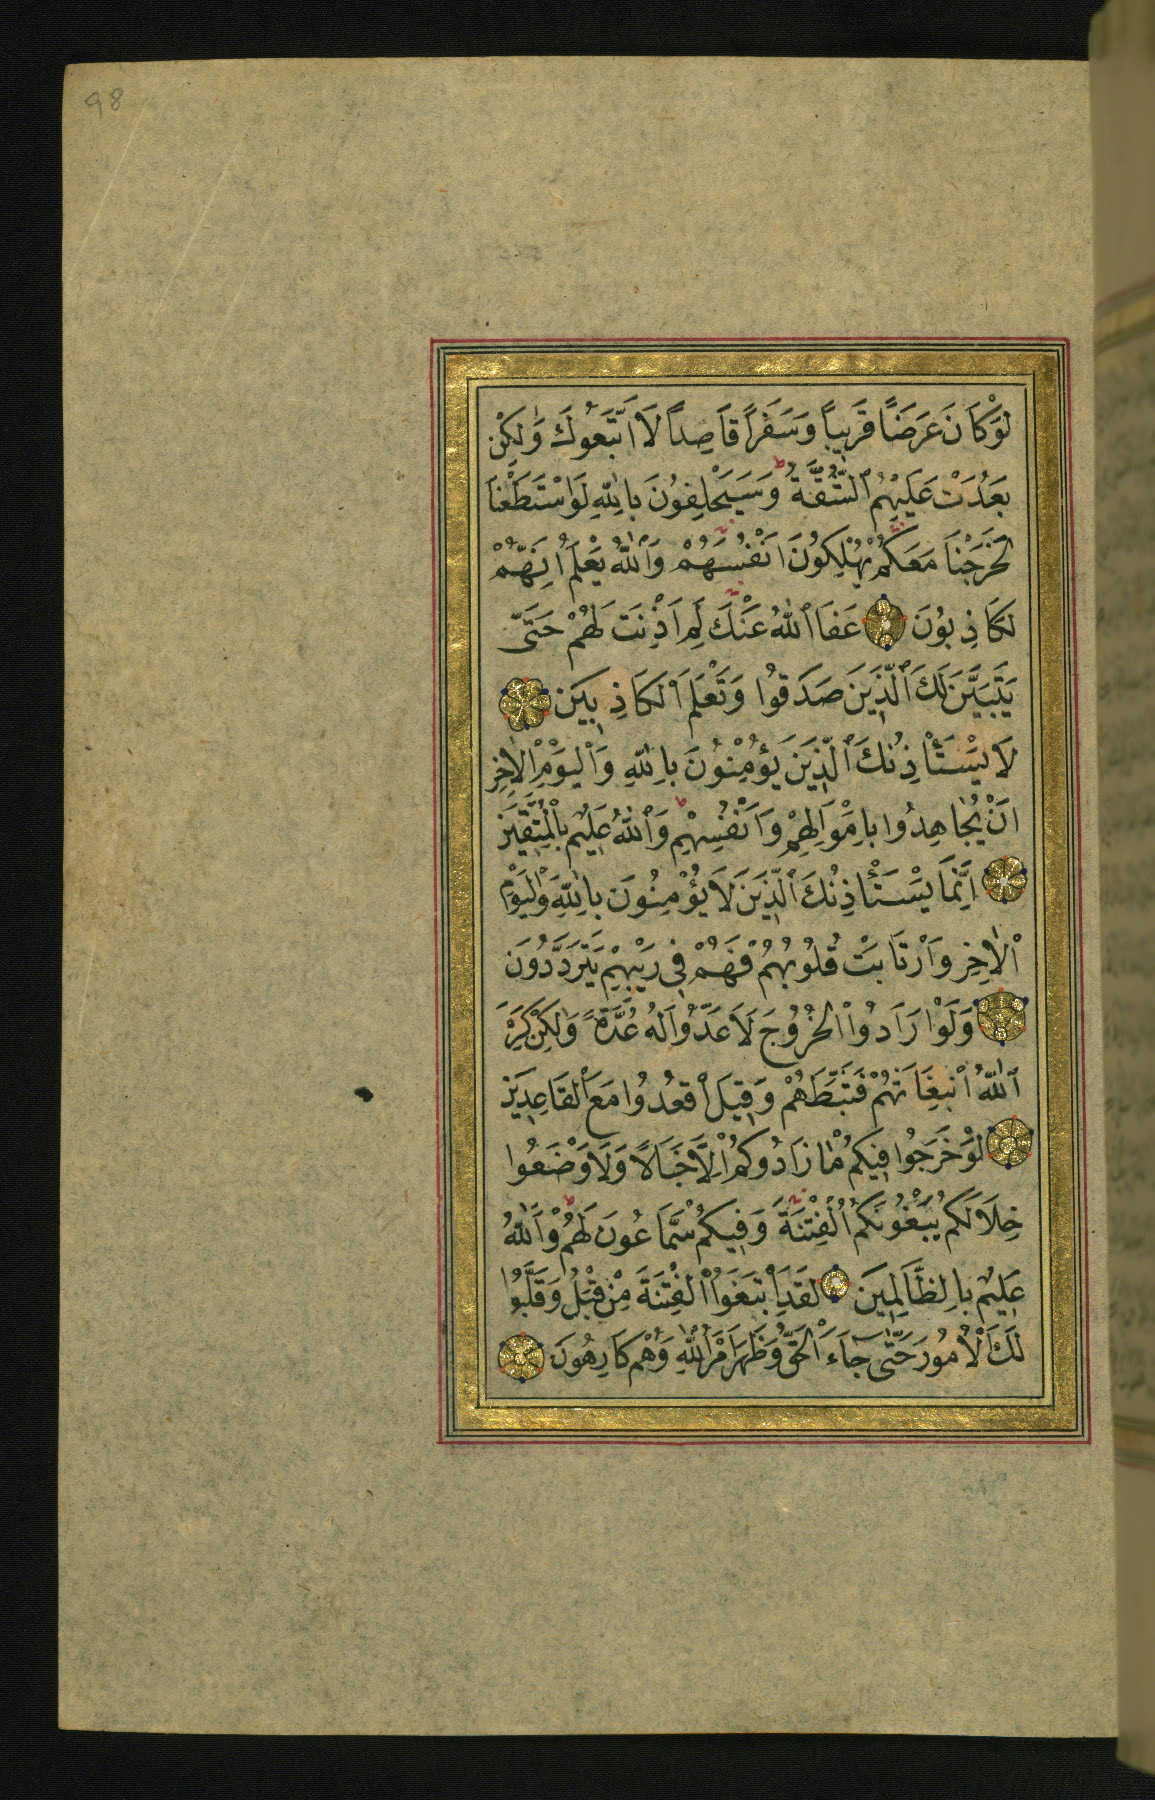 98
لَوْ كَانَ عَرَضًا قَرِيبًا وَسَفَرًا قَاصِدًا لَا اتَّبَعُوكَ وَلٰكِنْ
بَعُدَتْ عَلَيْهِمُ ٱلشُّقَّةُ ط وَسَيَحْلِفُونَ بِاللّٰهِ لَوِ اسْتَطَعْنَا
لَخَرَجْنَا مَعَكُمْ يُهْلِكُونَ اَنْفُسَهُمْ وَٱللّٰهُ يَعْلَمُ اِنَّهُمْ
لَكَاذِبُونَ عَفَا ٱللّٰهُ عَنْكَ لِمَ اَذِنْتَ لَهُمْ حَتّٰى
يَتَبَيَّنَ لَكَ ٱلَّذِينَ صَدَقُوا وَتَعْلَمَ ٱلْكَاذِبِينَ
لَا يَسْتَأْذِنُكَ ٱلَّذِينَ يُؤْمِنُونَ بِاللّٰهِ وَٱلْيَوْمِ ٱلْاٰخِرِ
اَنْ يُجَاهِدُوا بِاَمْوَالِهِمْ وَاَنْفُسِهِمْ ط وَٱللّٰهُ عَلِيمٌ بِالْمُتَّقِينَ
اِنَّمَا يَسْتَأْذِنُكَ ٱلَّذِينَ لَا يُؤْمِنُونَ بِاللّٰهِ وَالْيَوْمِ
ٱلْاٰخِرِ وَٱرْتَابَتْ قُلُوبُهُمْ فَهُمْ فِى رَيْبِهِمْ يَتَرَدَّدُونَ
وَلَوْ اَرَادُوا ٱلْخُرُوجَ لَاَعَدُّوا لَهُ عُدَّةً وَلٰكِنْ كَرِهَ
ٱللّٰهُ ٱنْبِعَاثَهُمْ فَثَبَّطَهُمْ وَقِيلَ ٱقْعُدُوا مَعَ ٱلْقَاعِدِينَ
لَوْ خَرَجُوا فِيكُمْ مَا زَادُوكُمْ اِلَّا خَبَالًا وَلَا وْضَعُوا
خِلَالَكُمْ يَبْغُونَكُمُ ٱلْفِتْنَةَ وَفِيكُمْ سَمَّاعُونَ لَهُمْ ط وَٱللّٰهُ
عَلِيمٌ بِالظَّالِمِينَ لَقَدِ ٱبْتَغَوُا ٱلْفِتْنَةَ مِنْ قَبْلُ وَقَلَّبُوا
لَكَ ٱلْاُمُورَ حَتّٰى جَاءَ ٱلْحَقُّ وَظَهَرَ اَمْرُ ٱللّٰهِ وَهُمْ كَارِهُونَ